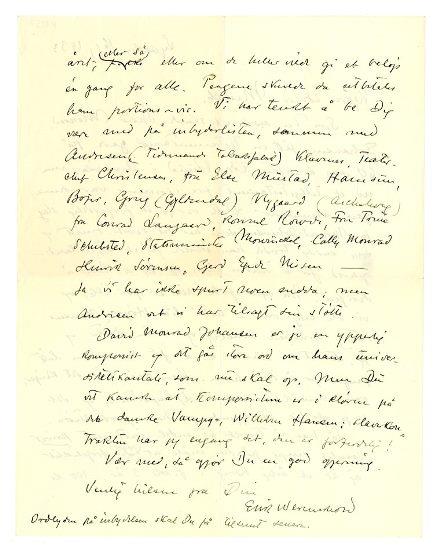 året, (eller så) eller om de heller vilde gi et beløp
én gang for alle. Pengene skulde da utbetales
ham portions-vis. Vi har tenkt å be Dig
være med på inbyderlisten, sammen med
Andresen (Tidemands Tobaksfabrik) Klaveness, Teater-
chef Christensen, frk Else Mustad, Hamsun,
Bojer, Grieg (Gyldendal) Nygaard (Aschehoug)
fru Conrad Langaard, Konsul Röwde, Fru Trine
Schibsted, Statsminister Mowinckel, Cally Monrad
Henrik Sörensen, Gjerd Nissen
Ja vi har ikke spurt noen endda; men
Andresen vet vi har tilsagt sin støtte.
David Monrad Johansen er jo en ypperlig
komponist og det går store ord om hans univer-
sitetskantate, som nu skal op. Men Du
vet kanske at komponistene er i kloven på
den danske Vampyr, Wilhelm Hansen; slavekon-
trakten har jeg engang set, den er forferdelig!
Vær med, så gjør Du en god gjerning
Venlig hilsen fra Din
Erik Werenskiold
Ordlyden på inbydelsen skal Du få tilsendt senere.